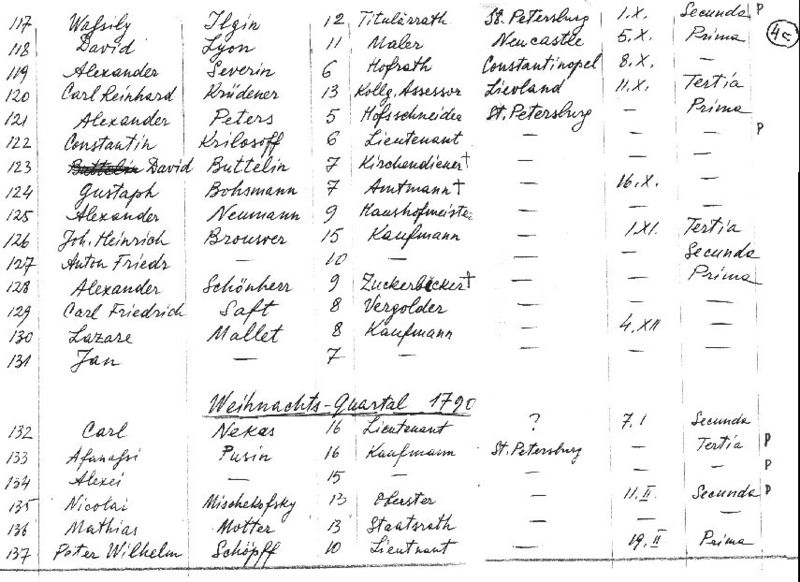 117 Wassily Ilgin 12 Titulärrath St. Petersburg 1.X. Secunda P
118 David Lyon 11 Maler Neucastle 5.X. Prima 4c
119 Alexander Severin 6 Hofrath Constantinopel 8.X. —
120 Carl Reinhard Krüdener 13 Kollg. Assessor Lievland 11.X. Tertia
121 Alexander Peters 5 Hofsschneider St. Petersburg — Prima
122 Constantin Krilosoff 6 Lieutenant — — — P
123 David Buttelin 7 Kirchendiener† — — —
124 Gustaph Bohsmann 7 Amtmann† — 16.X. —
125 Alexander Neumann 9 Haushofmeister — — —
126 Joh. Heinrich Brouwer 15 Kaufmann — 1.XI. Tertia
127 Anton Friedr — 10 — — — Secunda
128 Alexander Schönherr 9 Zuckerbäcker† — — Prima
129 Carl Friedrich Saft 8 Vergolder — — —
130 Lazare Mallet 8 Kaufmann — 4.XII —
131 Jan — 7 — — — —
Weihnachts-Quartal 1790
132 Carl Nekas 16 Lieutenant ? 7.I Secunda
133 Afanassi Pusin 16 Kaufmann St. Petersburg — Tertia P
134 Alexei — 15 — — — — P
135 Nicolai Mischekofsky 13 Oberster — 11.II. Secunda P
136 Mathias Motter 13 Staatsrath — — —
137 Peter Wilhelm Schöpff 10 Lieutnant — 19.II Prima